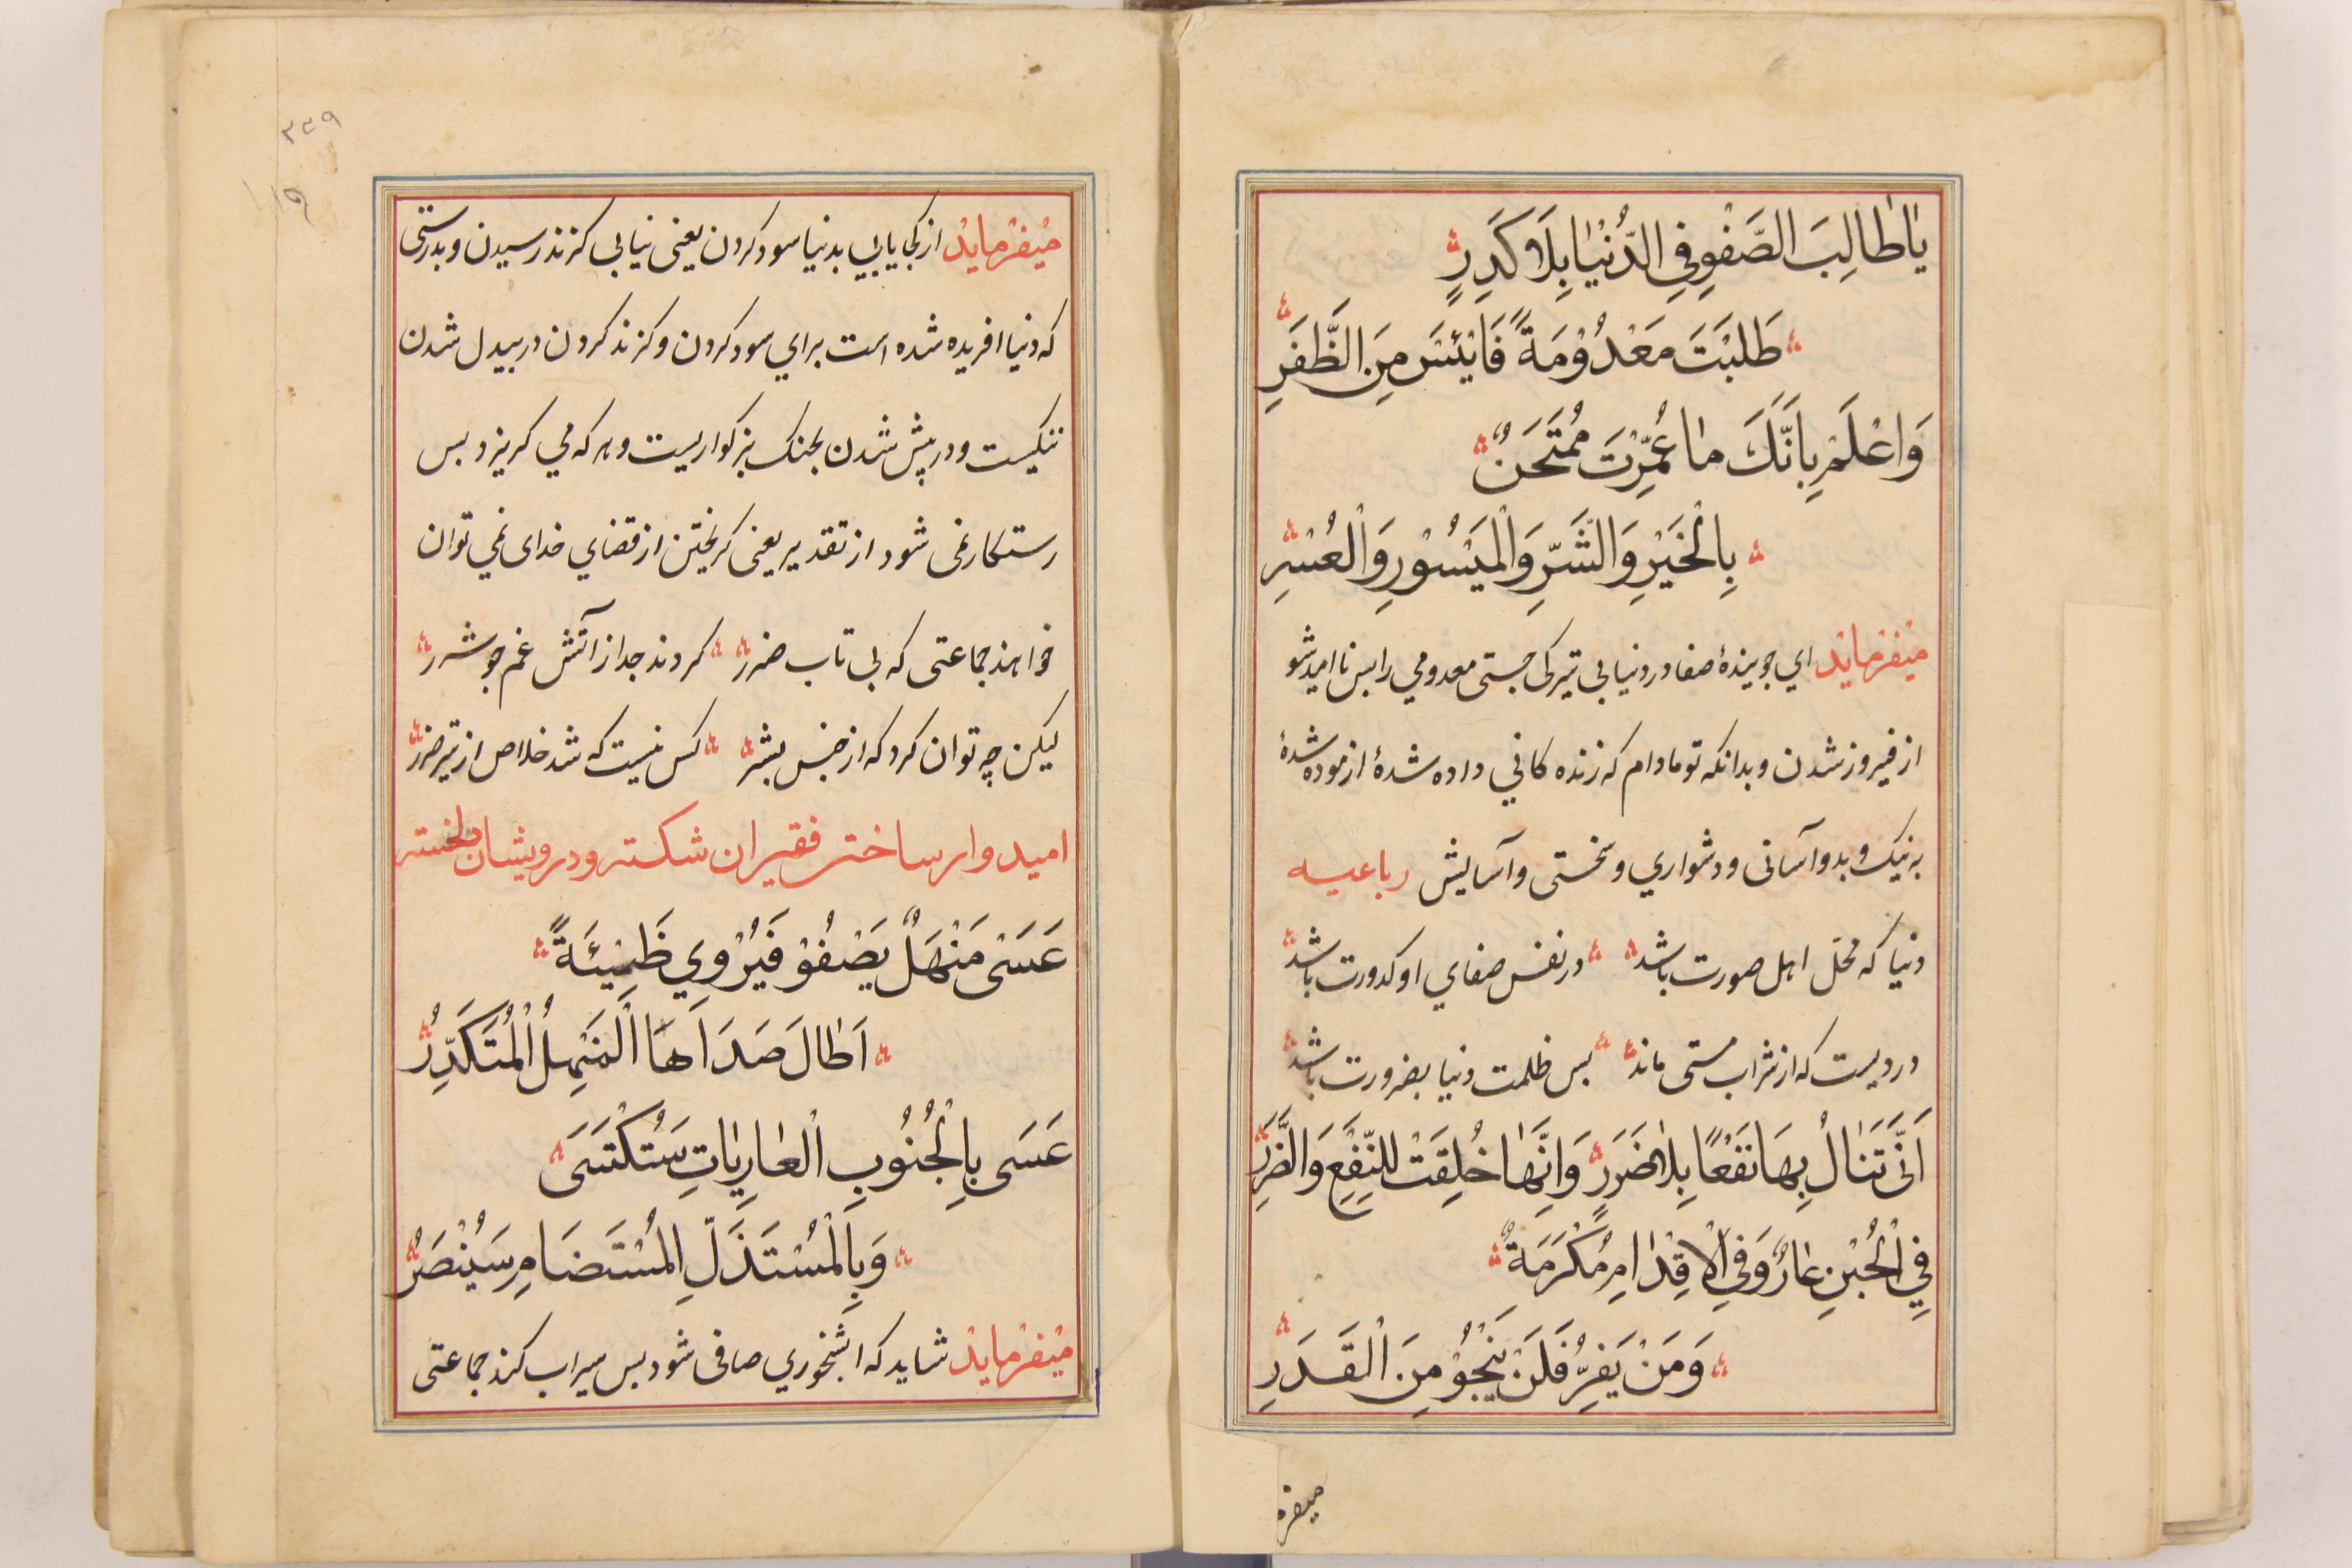 يٰا طٰالِبَ الصَّفْوِ فِي الدُّنْيٰا بِلَا كَدَرٍ
طَلَبْتَ مَعْدُوْمَةً فَايْئَسْ مِنَ الظَّفَرِ
وَاعْلَمْ بِاَنَّكَ مٰا عُمِّرْتَ مُمْتَحَنٌ
بِالْخَيْرِ وَالشَّرِّ وَالْمَيْسُوْرِ وَالْعُسْرِ
ميفرمايد اي جويندۀ صفا در دنيا بي تيركى جستى معدومي را بس نا اميد شو
از فيروز شدن و بدانكه تو مادام كه زنده كاني داده شدۀ ازموده شدۀ
به نيك و بد و آسانى و دشواري و سختى و آسايش رباعيه
دنيا كه محل اهل صورت باشد در نفس صفاي او كدورت باشد
درديست كه از شراب مستى ماند بس ظلمت دنيا بضرورت باشد
اَنّٰى تَنٰالُ بِهَا نَفْعًا بِلٰا ضَرَرٍ وَاِنَّهٰا خُلِقَتْ لِلنَّفْعِ وَالضَّرَرِ
فِي الْجُبْنِ عٰارٌ وَفِي الْاِقْدٰامِ مُكْرَمَةٌ
وَمَنْ يَفِرُّ فَلَنْ يَنْجُوْ مِنَ الْقَدَرِ
ميفرم
٣٣٩
١١٩
ميفرمايد از كجا يابي بدنيا سود كردن يعنى نيابي كزند رسيدن و بدرستى
كه دنيا افريده شده است براي سود كردن و كزند كردن در بيدل شدن
ننكيست و در پيش شدن بجنك بزركواريست و هر كه مي كريزد بس
رستكار نمى شود از تقدير يعنى كريختن از قضاي خداى نمي توان
خواهند جماعتى كه بى تاب ضرر كردند جدا از آتش غم جو شرر
ليكن چه توان كرد كه از جنس بشر كس نيست كه شد خلاص از تير ضرر
اميدوار ساختن فقيران شكسته و درويشان دلخسته
عَسَىٰ مَنْهَلٌ يَصْفُوْ فَيُرْوِي ظَمِيْئَةً
اَطٰالَ صَدَاهَا الْمَنْهِلُ الْمُتَكَدِّرُ
عَسَى بِالْجُنُوبِ الْعٰارِيٰاتِ سَتُكْتَسَى
وَبِالْمُسْتَذَلِّ الْمُسْتَضَامِ سَيُنْصَرُ
ميفرمايد شايد كه ابشخوري صافى شود بس سيراب كند جماعتى